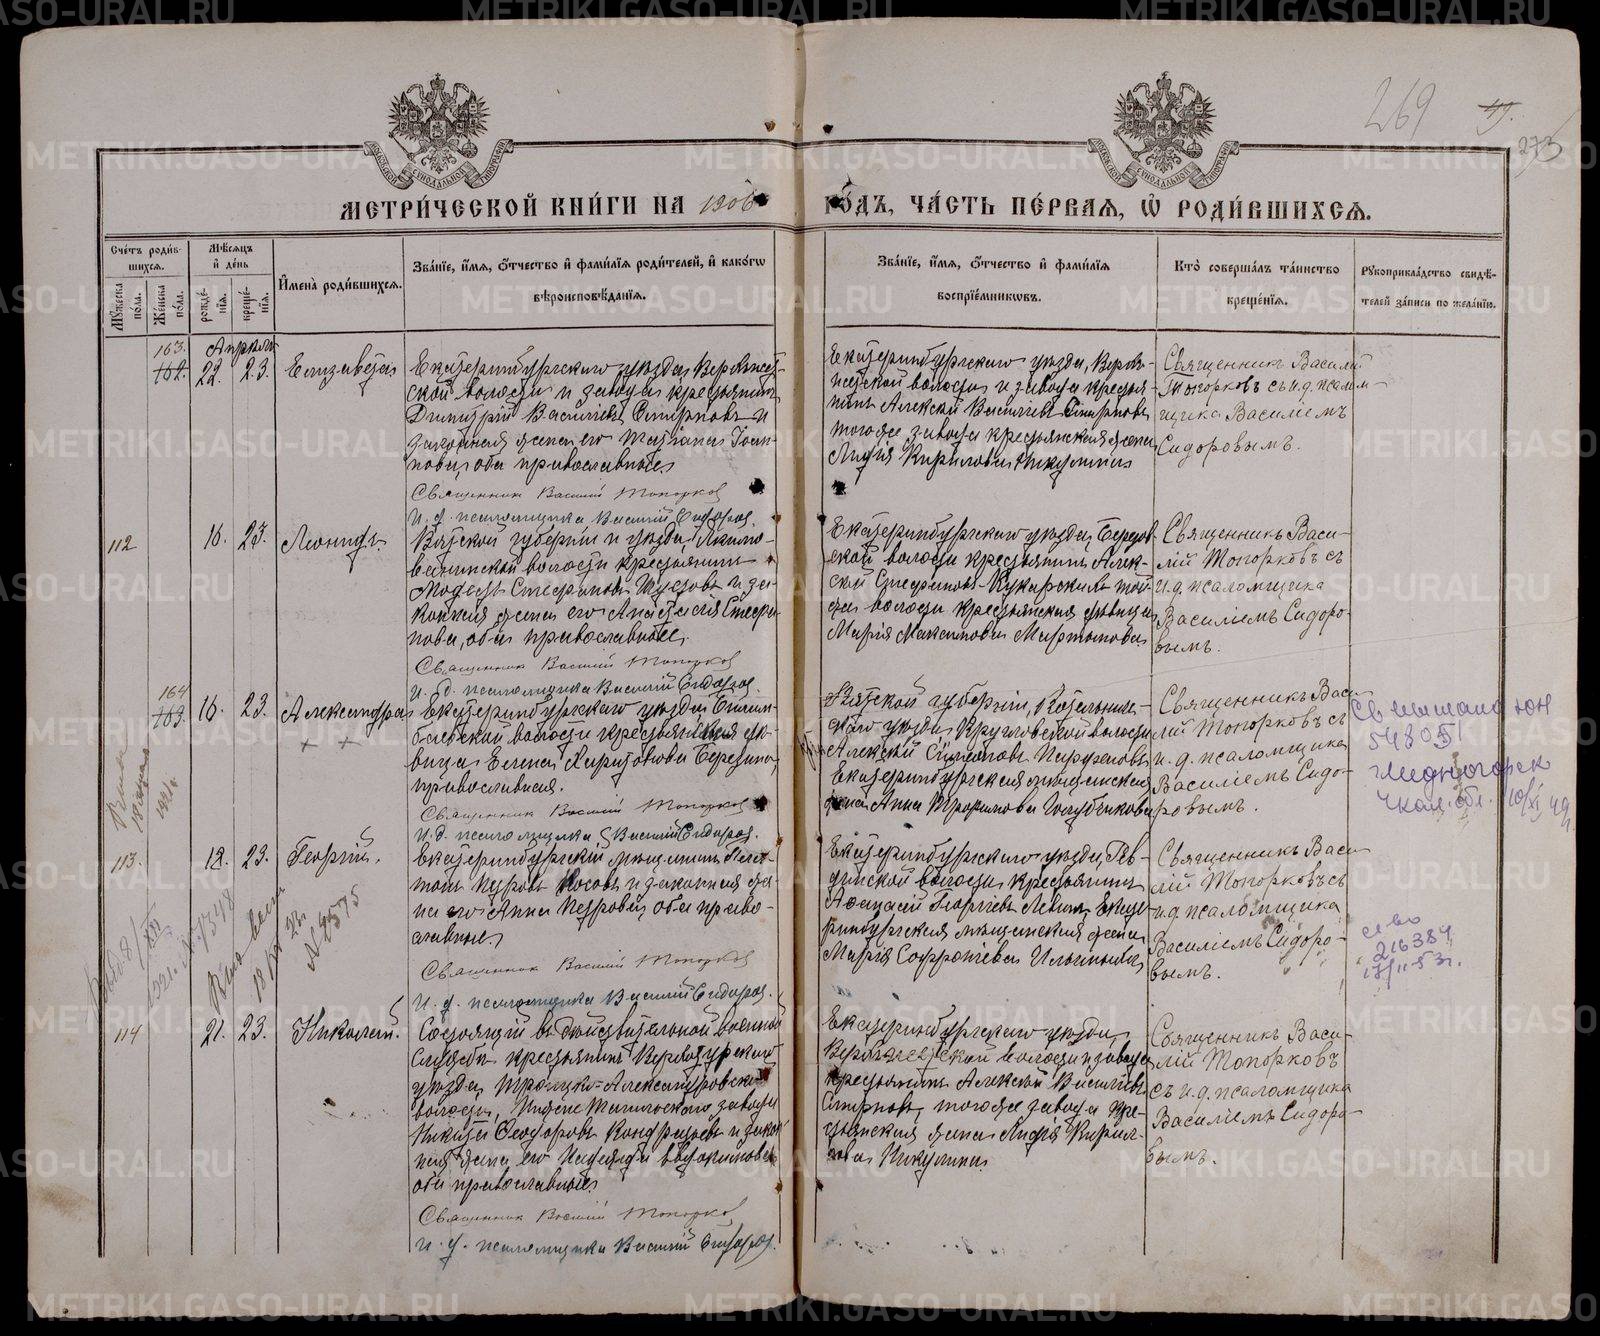 269
273
МЕТРИ́ЧЕСКОЙ КНИ́ГИ НА 1906
ГО́ДЪ, ЧА́СТЬ ПЕ́РВАЯ, Ѡ҆ РОДИ́ВШИХСѦ.
Счётъ роди́вшихсѧ.
Му́жеска по́ла.
Же́нска по́ла.
Мѣ́сѧцъ и҆ де́нь
рожде́нїѧ.
креще́нїѧ.
И҆мена̀ роди́вшихсѧ.
Зва́нїе, и҆́мѧ, ѻ҆́тчество и҆ фами́лїѧ роди́телей, и҆ како́гѡ
вѣроисповѣ́данїѧ.
Зва́нїе, и҆́мѧ, ѻ҆́тчество и҆ фами́лїѧ
воспрїе́мникѡвъ.
Кто̀ соверша́лъ та́инство
креще́нїѧ.
Рꙋкоприкла́дство свидѣ́-
телей за́писи по жела́нїю.
163.
Апрѣль
22. 23.
Елизавета
Екатеринбургскаго уѣзда, Верхнисет-
ской волости и завода крестьянинъ
Димитрій Васильевъ Смирновъ и
законная жена его Татіана Іоан-
нова, оба православные.
Священник Василий Топорков
И. д. псаломщика Василий Сидоров.
Екатеринбургскаго уѣзда, Верхъ-
исетской волости и завода крестья-
нинъ Алексѣй Васильевъ Смирновъ,
тогоже завода крестьянская жена
Лидія Кирилова Никулина
Священникъ Василій
Топорковъ съ и.д. псалом-
щика Василіемъ
Сидоровымъ.
112
16. 23.
Леонидъ.
Вятской губерніи и уѣзда,
волости крестьянинъ
Модестъ Стефановъ и за-
конная жена его Анастасія Стефа-
нова, оба православные.
Священник Василий Топорков
И. д. псаломщика Василий Сидоров.
Екатеринбургскаго уѣзда,
ской волости крестьянинъ Алек-
сѣй Стефановъ Кукарскихъ той-
же волости крестьянская дѣвица
Марія Максимова Мартынова
Священникъ Васи-
лій Топорковъ съ
и.д. псаломщика
Василіемъ Сидоро-
вымъ.
164
16. 23.
Александра
Екатеринбургскаго уѣзда,
волости крестьянская дѣ-
вица Елена Харитонова Березина,
православная.
Священник Василий Топорков
И. д. псаломщика Василий Сидоров.
Вятской губерніи, Котельниче-
скаго уѣзда, волости
Алексѣй
Екатеринбургская мѣщанская
жена Анна Трофимова Голубчикова
Священникъ Васи-
лій Топорковъ съ
и. д. псаломщика
Василіемъ Сидо-
ровымъ.
548051
Медногорск
113.
12. 23.
Георгій.
Екатеринбургскій мѣщанинъ
Петровъ Носовъ и законная же-
на его Анна Петрова, оба право-
славные.
Священник Василий Топорков
И. д. псаломщика Василий Сидоров.
Екатеринбургскаго уѣзда, Рев-
динской волости крестьянинъ
Афанасій Георгіевъ Левинъ, Екате-
ринбургская мѣщанская жена
Марія Софронтіева Ильиныхъ
Священникъ Васи-
лій Топорковъ съ
и.д. псаломщика
Василіемъ Сидоро-
вымъ.
216384
17/II-53г.
№ 7348
№ 8575
114
21. 23.
Николай.
Состоящій въ дѣйствительной военной
службѣ крестьянинъ Верхотурскаго
уѣзда, Троицко-Александровской
волости, Нижне Тагильскаго завода
Никита Ѳеодоровъ Кондратьевъ и закон-
ная жена его Надежда
оба православные.
Священник Василий Топорков
И. д. псаломщика Василий Сидоров.
Екатеринбургскаго уѣзда,
Верхъисетской волости и завода
крестьянинъ Алексѣй Васильевъ
Смирновъ, тогоже завода кре-
стьянская жена Лидія Кирил-
лова Никулина.
Священникъ Васи-
лій Топорковъ
съ и.д. псаломщика
Василіемъ Сидоро-
вымъ.
METRIKI.GASO-URAL.RU